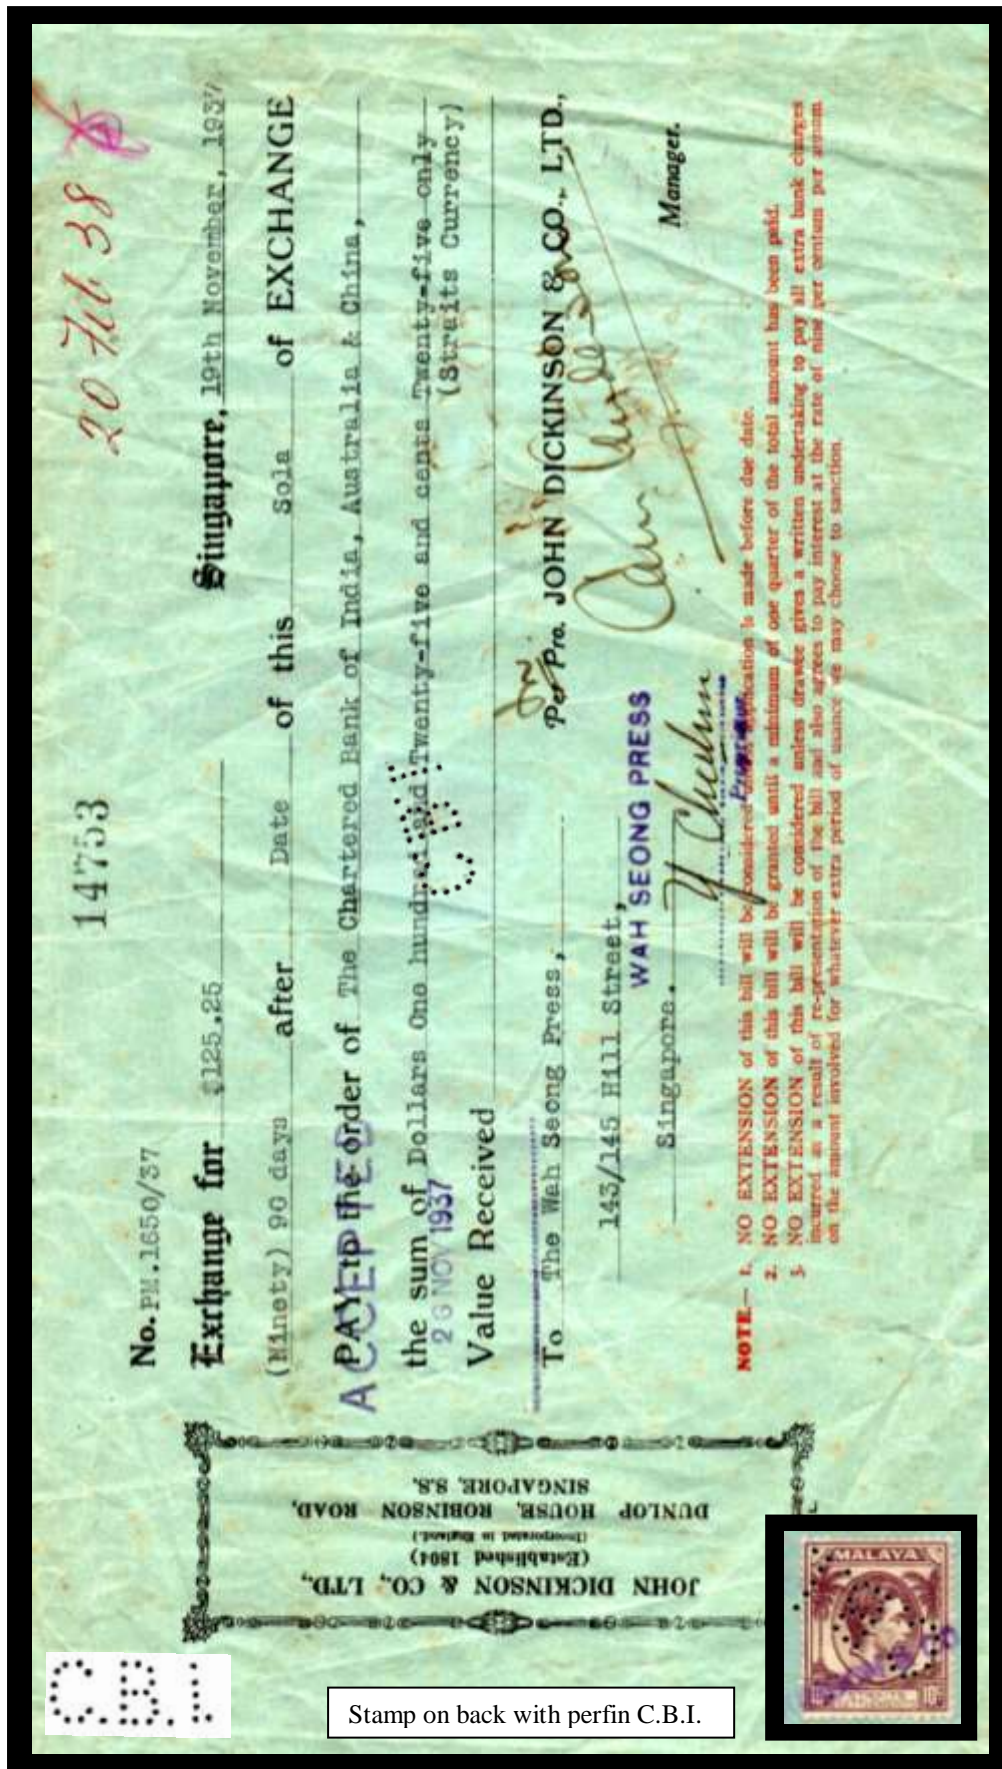 14753
20 Feb 38
No. PM.1650/37
Singapore, 19th November, 1937
Exchange for $125.25
(Ninety) 90 days after Date of this Sola of EXCHANGE
PAY to the order of The Chartered Bank of India, Australia & China,
ACCEPTED
the sum of Dollars One hundred and Twenty-five and cents Twenty-five only
26 NOV 1937
(Straits Currency)
C.B.I.
Value Received
To The Wah Seong Press,
Per Pro. JOHN DICKINSON & CO., LTD.,
143/145 Hill Street,
WAH SEONG PRESS
Singapore.
Manager.
NOTE.— 1. NO EXTENSION of this bill will be considered unless application is made before due date.
2. NO EXTENSION of this bill will be granted until a minimum of one quarter of the total amount has been paid.
3. NO EXTENSION of this bill will be considered unless drawee gives a written undertaking to pay all extra bank charges
incurred as a result of re-presentation of the bill and also agrees to pay interest at the rate of nine per centum per annum
on the amount involved for whatever extra period of usance we may choose to sanction.
JOHN DICKINSON & CO., LTD.,
(Established 1804)
(Incorporated in England.)
DUNLOP HOUSE, ROBINSON ROAD,
SINGAPORE, S.S.
C.B.I.
Stamp on back with perfin C.B.I.
MALAYA